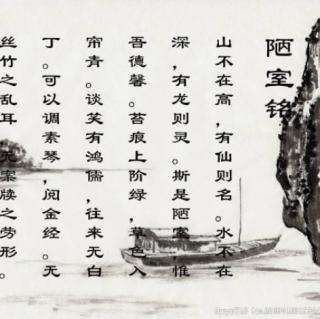 陋室铭
山不在高，有仙则名。水不在
深，有龙则灵。斯是陋室，惟
吾德馨。苔痕上阶绿，草色入
帘青。谈笑有鸿儒，往来无白
丁。可以调素琴，阅金经。无
丝竹之乱耳，无案牍之劳形。